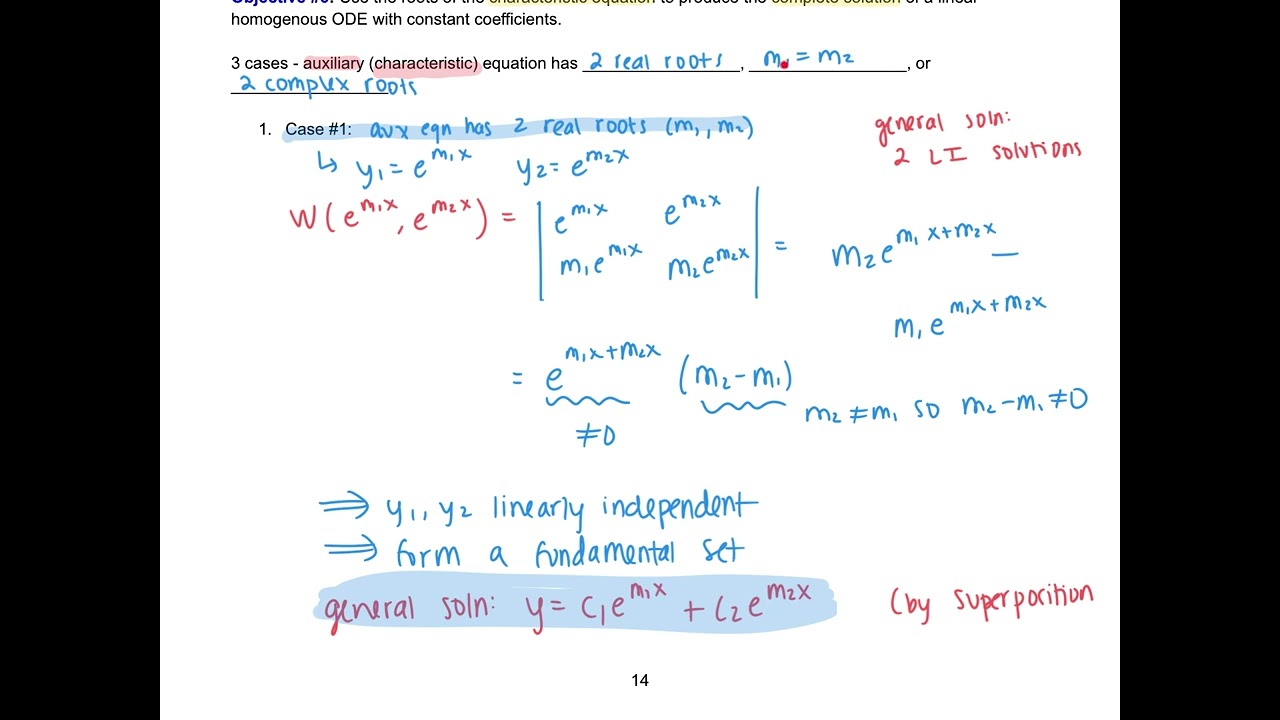 Objective #6: Use the roots of the characteristic equation to produce the complete solution of a linear
homogenous ODE with constant coefficients.
3 cases - auxiliary (characteristic) equation has 2 real roots, m₁ = m₂, or
2 complex roots
1. Case #1: aux eqn has 2 real roots (m₁, m₂)
general soln:
2 LI solutions
↳ y₁ = e^{m₁x} y₂ = e^{m₂x}
W(e^{m₁x}, e^{m₂x}) = | e^{m₁x} e^{m₂x} |
| m₁e^{m₁x} m₂e^{m₂x} | = m₂e^{m₁x+m₂x} −
m₁e^{m₁x+m₂x}
= e^{m₁x+m₂x} (m₂−m₁)
m₂ ≠ m₁ so m₂−m₁ ≠ 0
≠0
⟹ y₁, y₂ linearly independent
⟹ form a fundamental set
general soln: y = c₁e^{m₁x} + c₂e^{m₂x} (by superposition
14